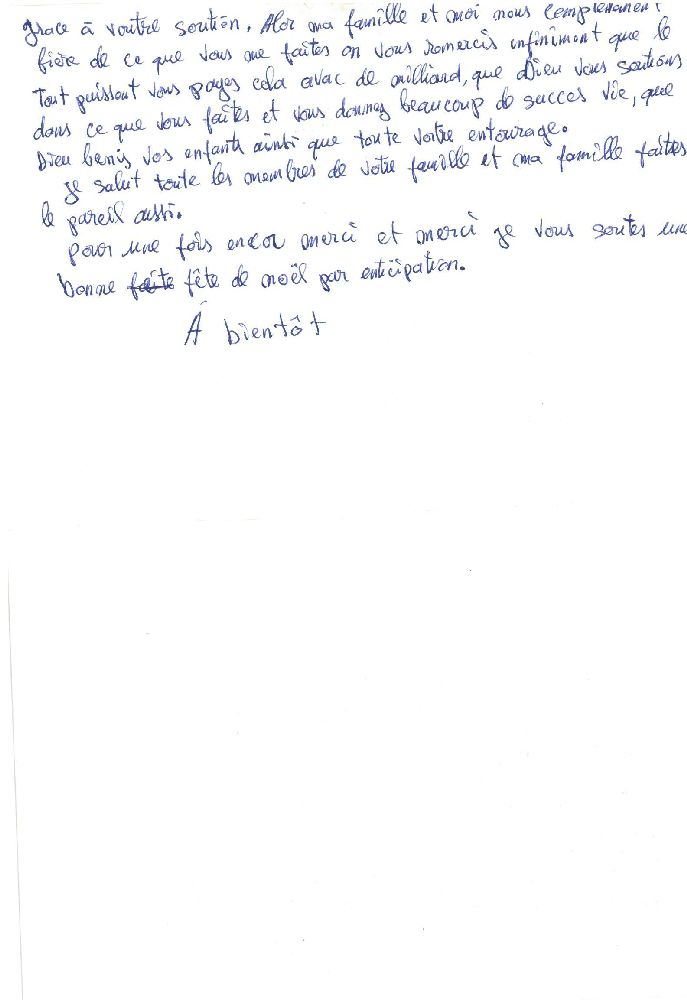 grace à voutre soutien. Alor ma famille et moi nous
fière de ce que vous me faites on vous remercis infiniment que le
Tout puissant vous payes cela avac de milliard, que Dieu vous soutions
dans ce que vous faîtes et vous donnez beaucoup de succes vie, que
Dieu benis vos enfants ainsi que toute votre entourage.
Je salut toute les membres de votre famille et ma famille faites
le pareil aussi.
pour une fois encor merci et merci je vous souites une
bonne faite fête de noël par enticipation.
À bientôt